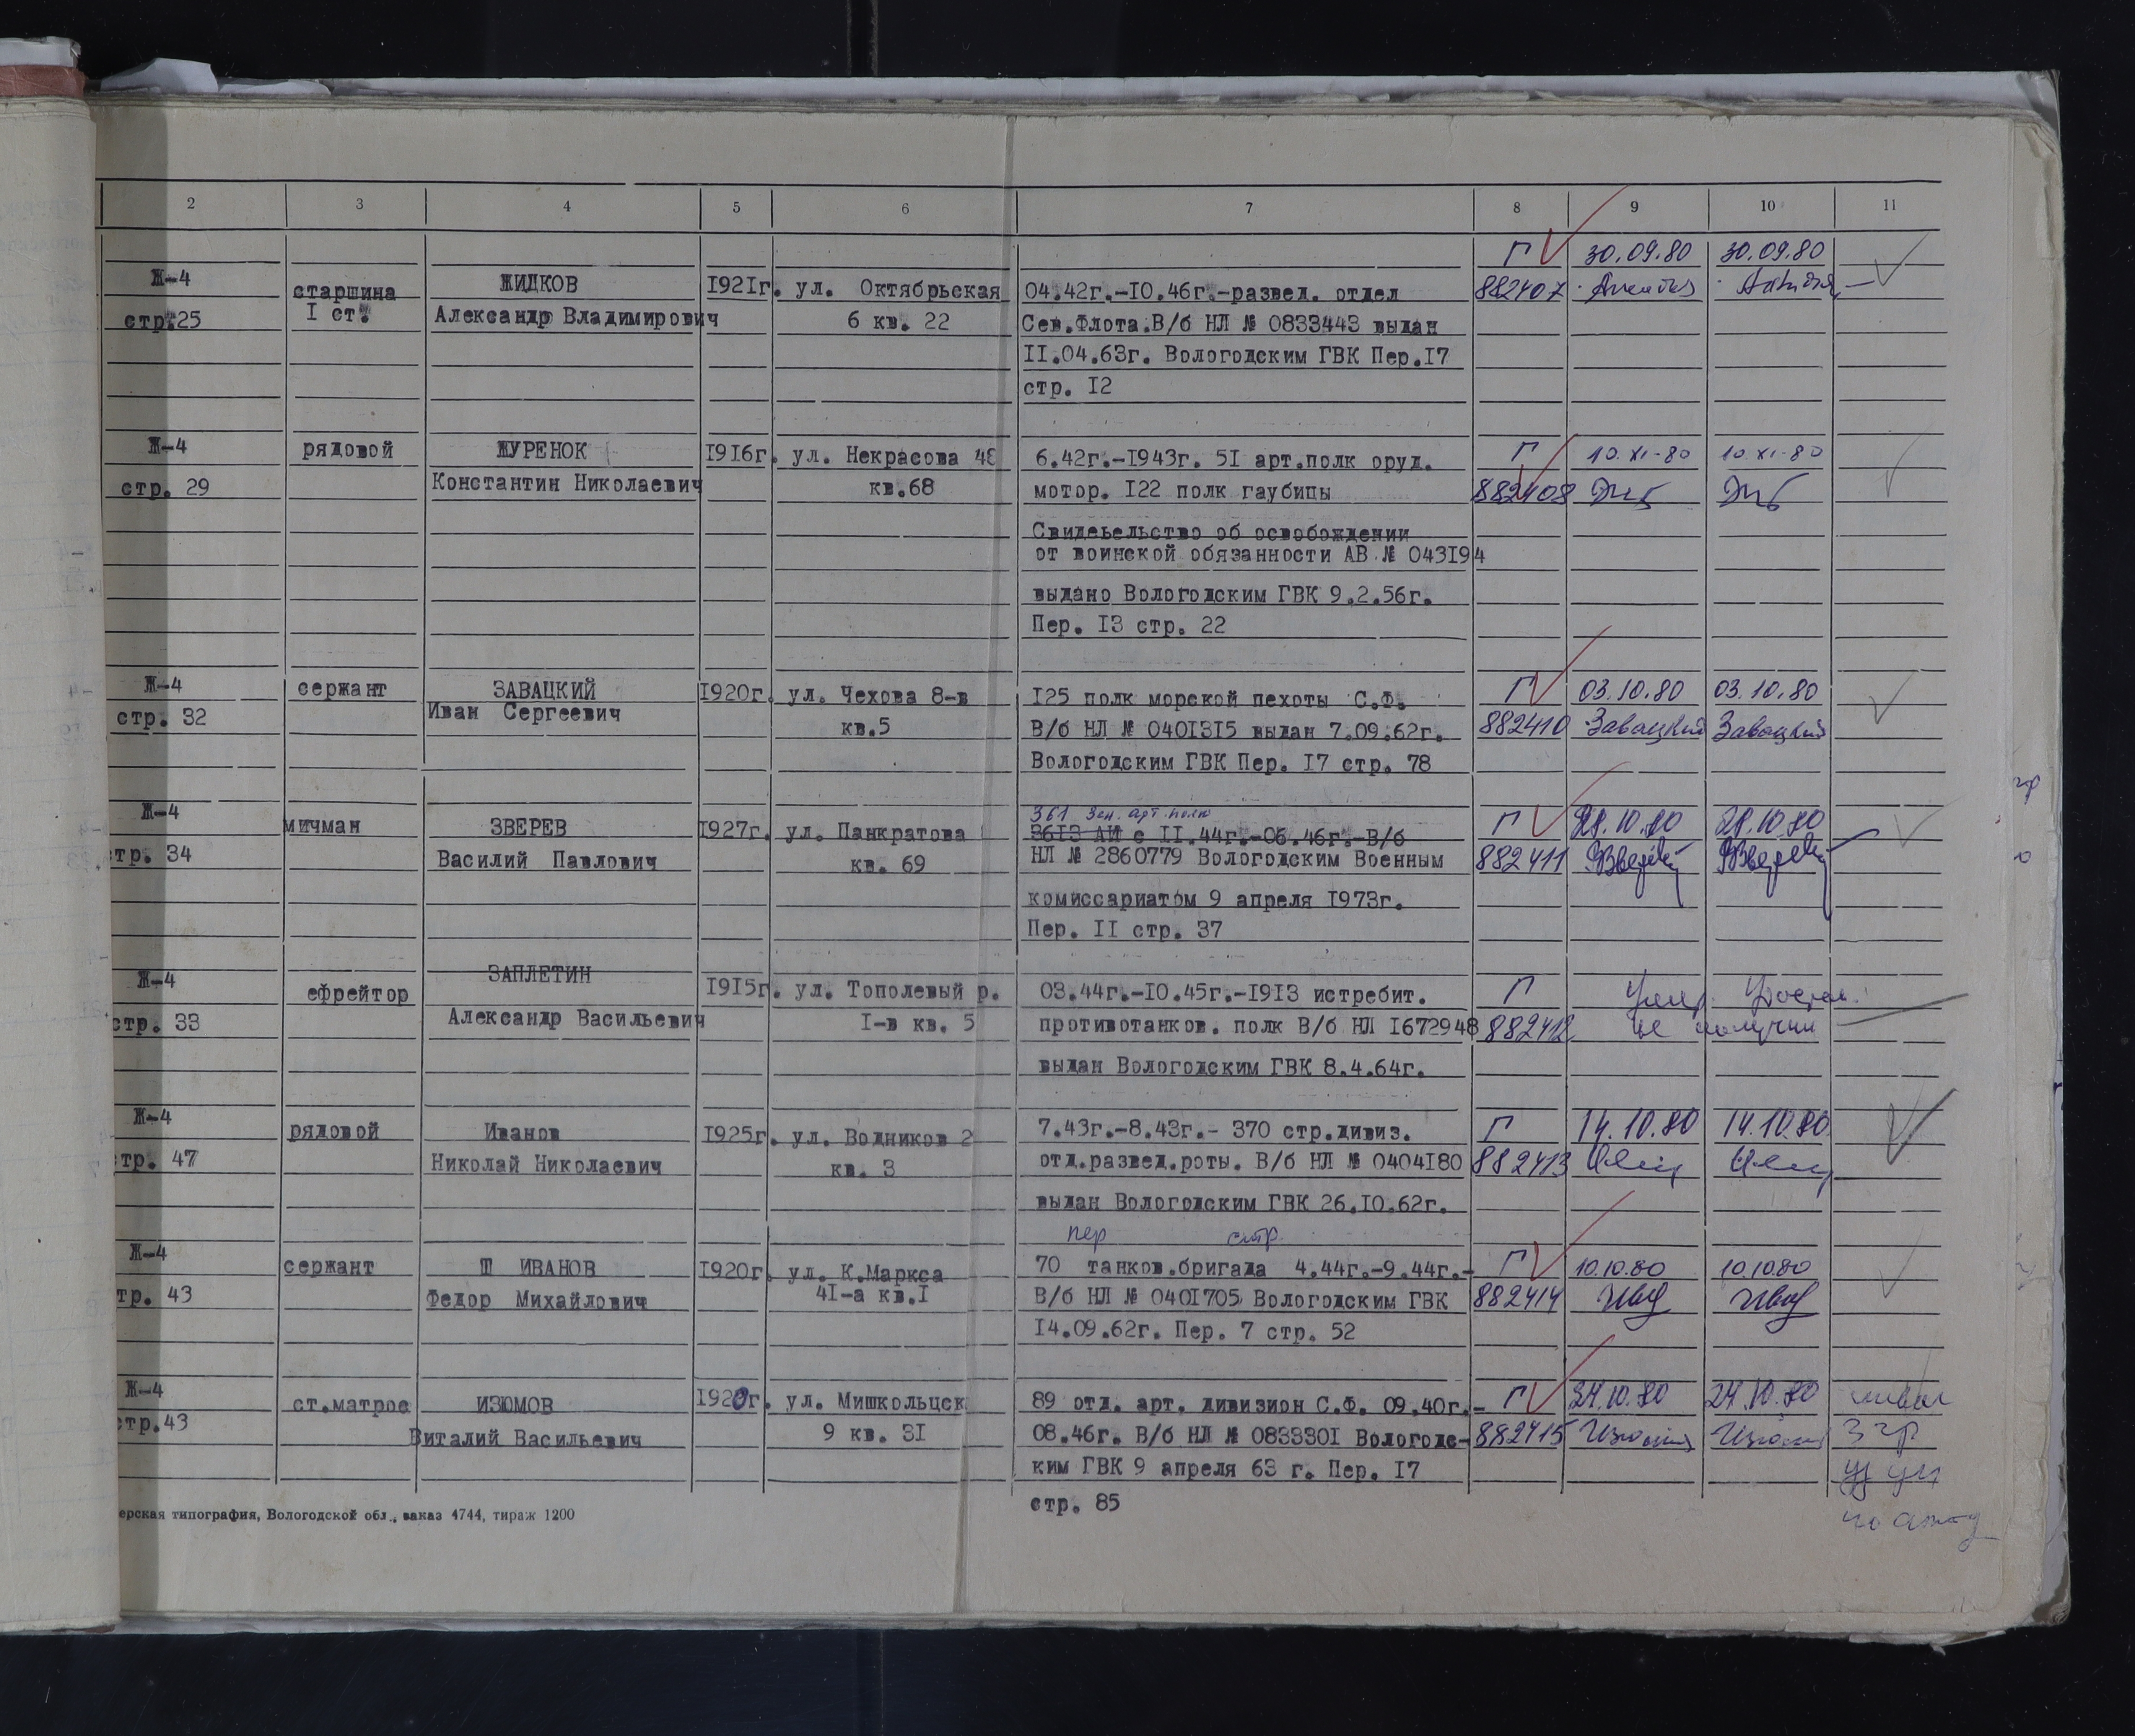 2 3 4 5 6 7 8 9 10 11
Г 30.09.80 30.09.80
Ж-4 старшина ЖИДКОВ I92Iг. ул. Октябрьская 04.42г.-I0.46г.-развед. отдел 882407
стр.25 I ст. Александр Владимирович 6 кв. 22 Сев.Флота.В/б НЛ № 0833443 выдан
II.04.63г. Вологодским ГВК Пер.I7
стр. I2
Ж-4 рядовой ЖУРЕНОК I9I6г. ул. Некрасова 48 6.42г.-I943г. 5I арт.полк оруд. Г 10.XI-80 10.XI-80
стр. 29 Константин Николаевич кв.68 мотор. I22 полк гаубицы 882408
Свидеьельство об освобождении
от воинской обязанности АВ № 043I94
выдано Вологодским ГВК 9.2.56г.
Пер. I3 стр. 22
Ж-4 сержант ЗАВАЦКИЙ I920г. ул. Чехова 8-в I25 полк морской пехоты С.Ф. Г 03.10.80 03.10.80
стр. 32 Иван Сергеевич кв.5 В/б НЛ № 040I3I5 выдан 7.09.62г. 882410 Завацкий Завацкий
Вологодским ГВК Пер. I7 стр. 78
361 зен. арт. полк
Ж-4 мичман ЗВЕРЕВ I927г. ул. Панкратова 36I3 АИ с II.44г.-06.46г.-В/б Г 21.10.80 21.10.80
тр. 34 Василий Павлович кв. 69 НЛ № 2860779 Вологодским Военным 882411
комиссариатом 9 апреля I973г.
Пер. II стр. 37
Ж-4 ефрейтор ЗАПЛЕТИН I9I5г. ул. Тополевый р. 03.44г.-I0.45г.-I9I3 истребит. Г Умер. Удостов.
стр. 33 Александр Васильевич I-в кв. 5 противотанков. полк В/б НЛ I672948 882412 не получил
выдан Вологодским ГВК 8.4.64г.
Ж-4 рядовой Иванов I925г. ул. Водников 2 7.43г.-8.43г.- 370 стр.дивиз. Г 14.10.80 14.10.80
тр. 47 Николай Николаевич кв. 3 отд.развед.роты. В/б НЛ № 0404I80 882413
выдан Вологодским ГВК 26.I0.62г.
пер стр
Ж-4 сержант Ш ИВАНОВ I920г. ул. К.Маркса 70 танков.бригада 4.44г.-9.44г.- Г 10.10.80 10.10.80
тр. 43 Федор Михайлович 4I-а кв.I В/б НЛ № 040I705 Вологодским ГВК 882414
I4.09.62г. Пер. 7 стр. 52
Ж-4 ст.матрос ИЗЮМОВ I920г. ул. Мишкольцск 89 отд. арт. дивизион С.Ф. 09.40г.- Г 24.10.80 24.10.80
стр.43 Виталий Васильевич 9 кв. 3I 08.46г. В/б НЛ № 083330I Вологодс- 882415 3 гр
ким ГВК 9 апреля 63 г. Пер. I7
стр. 85
ерская типография, Вологодской обл., заказ 4744, тираж 1200